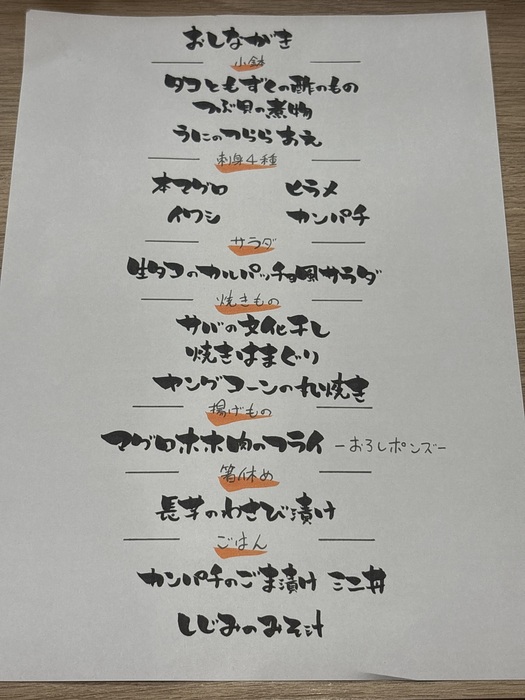 おしながき
小鉢
タコともずくの酢のもの
つぶ貝の煮物
うにのつらら
刺身4種
本マグロ ヒラメ
イワシ カンパチ
サラダ
生タコのカルパッチョ風サラダ
焼きもの
サバの文化干し
焼きはまぐり
ヤングコーンの丸焼き
揚げもの
マグロホホ肉のフライ −おろしポンズ−
箸休め
長芋のわさび漬け
ごはん
カンパチのごま漬け ミニ丼
しじみのみそ汁